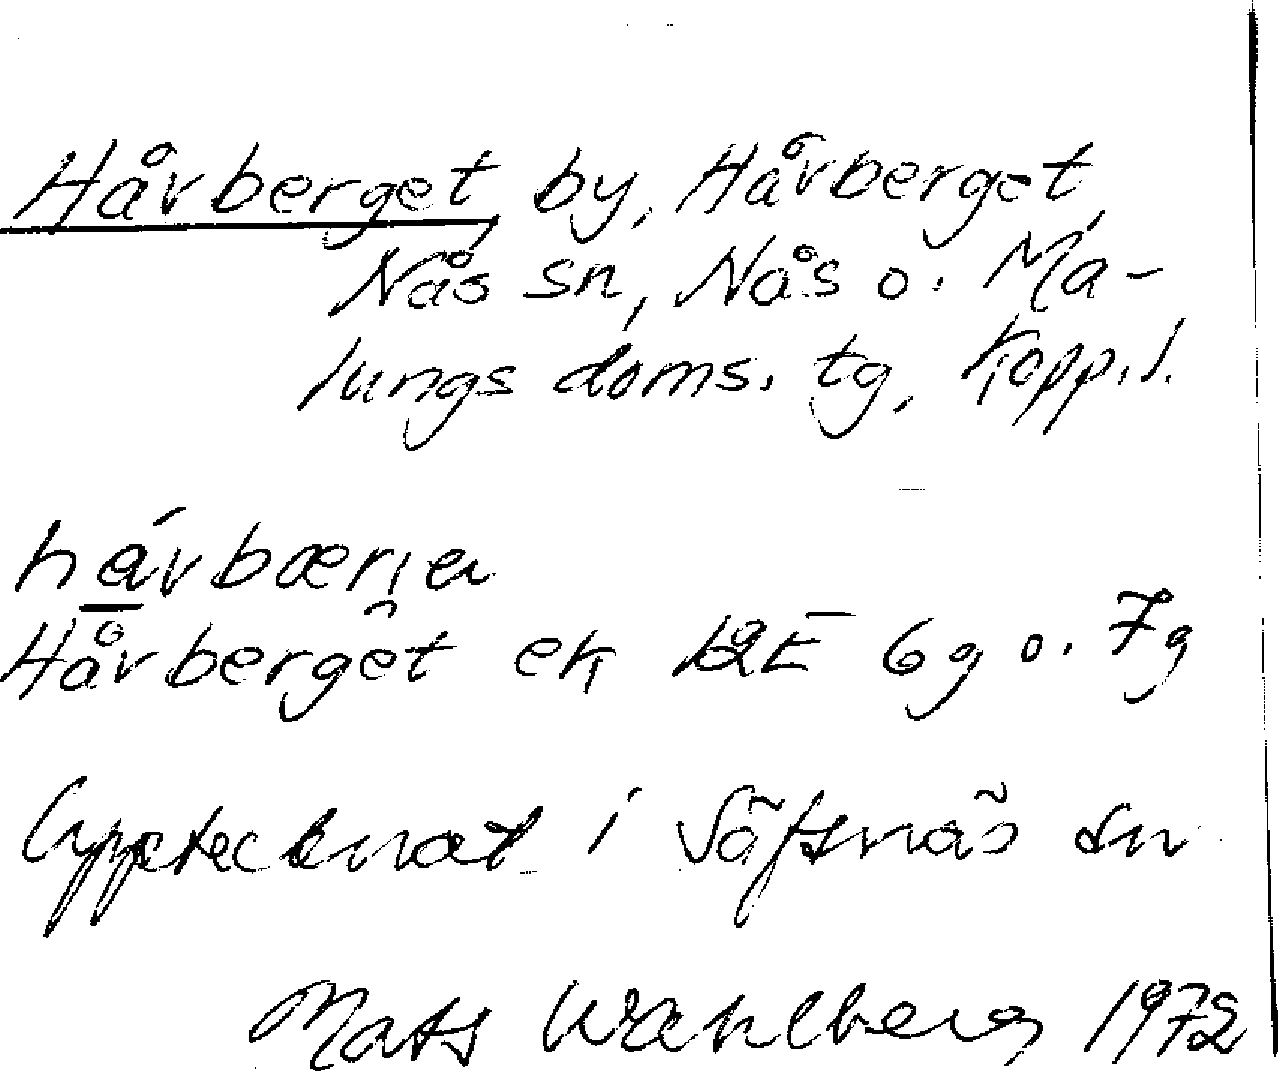 Håvberget, by, Håvberget,
Nås sn, Nås o. Ma-
lungs doms. tg, Kopp. l.
Håvberget ek 12E 6g o. 7g
Upptecknat i Säfsnäs sn
Mats Wahlberg 1972